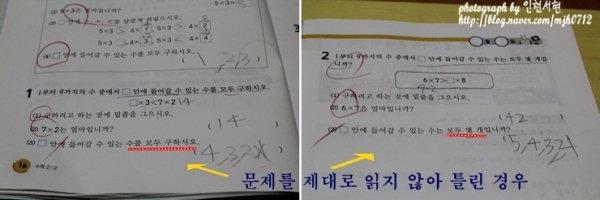 photograph by 인천서현
http://blog.naver.com/mjh0712
5×3=
(2) 5×3은 얼마입니까?
5×3 > 4×
5×3 > 4×2
5×3 > 4×3
5×3 > 4×4
(4) □ 안에 들어갈 수 있는 수를 모두 구하시오.
1 1부터 9까지의 수 중에서 □ 안에 들어갈 수 있는 수를 모두 구하시오.
□×3<7×2 14
(1) 구하려고 하는 것에 밑줄을 그으시오.
(2) 7×2는 얼마입니까?
( 14
(3) □ 안에 들어갈 수 있는 수를 모두 구하시오.
(4,3,2,1)
16 수학 2-2
2 1부터 9까지의 수 중에서 □ 안에 들어갈 수 있는 수는 모두 몇 개입니까?
6×7>□×8
42
(1) 구하려고 하는 것에 밑줄을 그으시오.
(2) 6×7은 얼마입니까?
(42
(3) □ 안에 들어갈 수 있는 수는 모두 몇 개입니까?
(5,4,3,2,1
문제를 제대로 읽지 않아 틀린 경우